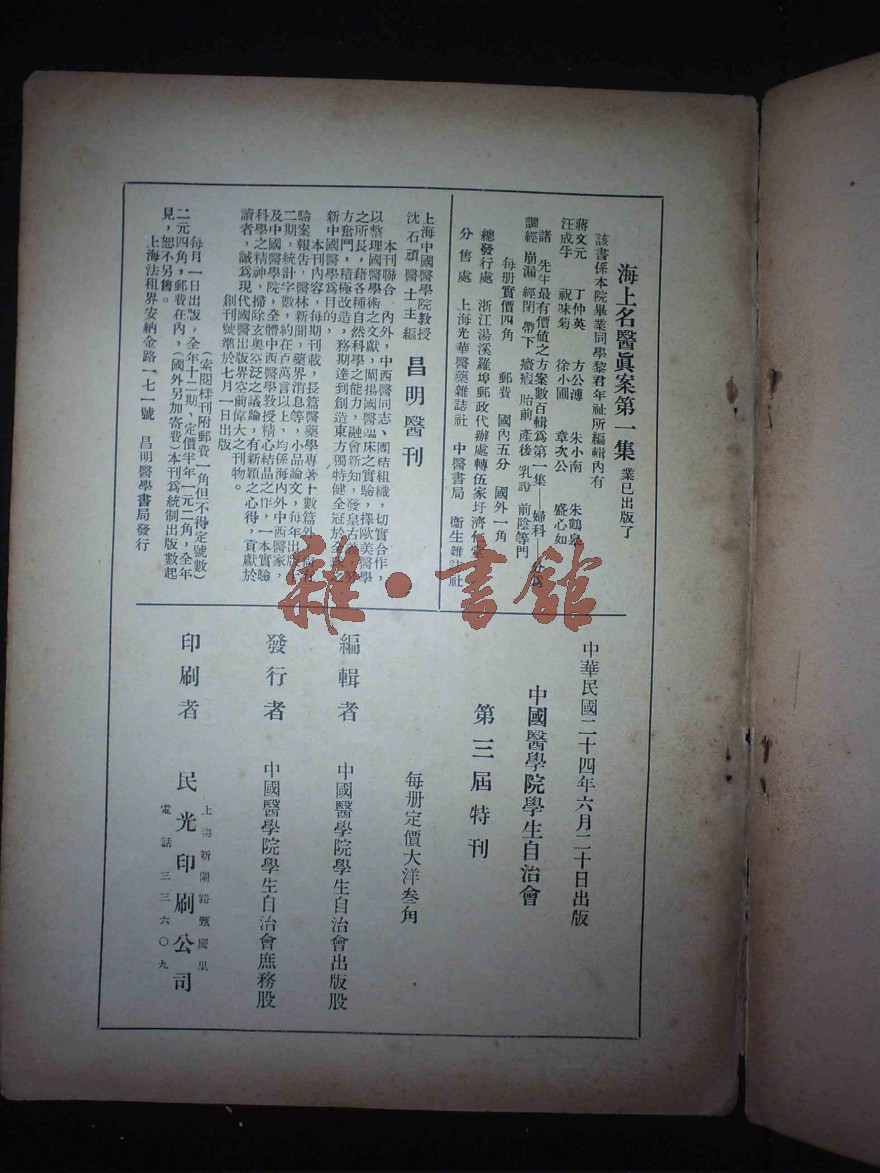 海上名醫眞案第一集 業已出版了
該書係本院畢業同學黎君年祉所編輯內有
蔣文元 丁仲英 方公溥 朱小南 朱鶴皋
汪成孚 祝味菊 徐小圃 章次公 盛心如
諸 先生最有價値之方案數百輯爲第一集——婦科 分爲
調經 崩漏 經閉 帶下 癥瘕 胎前 產後 乳證 前陰等門
每册實價四角 郵費 國內五分 國外一角
總發行處 浙江湯溪羅埠郵政代辦處轉伍家圩濟
分售處 上海光華醫藥雜誌社 中醫書局 衞生雜誌社
上海中國醫學院敎授
沈石頑醫士主編 昌明醫刊
本刊聯合 內外，中西醫同志、團結組織，切實合作，
以整理國醫學術之文獻，闡揚國醫臨床之實驗，擇歐美醫學
之所長，藉各種自然科學之能力，融會新知，發皇古
方奮鬥，積極改造，務期達到創造東方獨特健全冠於
新中國醫學爲目的，
本刊內容，每期刊載，長篇醫藥學專著十數篇外
驗案報告，醫林新聞，藥界消息等，小品論文，每年出版
二期，統計字數，約在百萬言以上，均係海內外中西醫家，
及中國醫學院，全體中西醫學敎授精心結晶之作，一本實驗
科學之精神，掃除玄奥空泛之議論，有新穎之心得，貢獻於
讀者，誠爲現代國醫出版界空前偉大之刊物。
創刊號準於七月一日出版
（索閱樣刊附郵費一角但不得定號數）
每月一日出版，全年十二期，定價半年一元二角，全年
二元四角，郵費在內，（國外另加寄費）本刊爲統制出版數起
見，恕不另售。
上海法租界安納金路一七一號 昌明醫學書局發行
中華民國二十四年六月二十日出版
中國醫學院學生自治會
第三屆特刊
每册定價大洋叁角
編輯者 中國醫學院學生自治會出版股
發行者 中國醫學院學生自治會庶務股
印刷者 民光印刷公司
上海新閘路甄慶里
電話三三六〇九
雜·書館